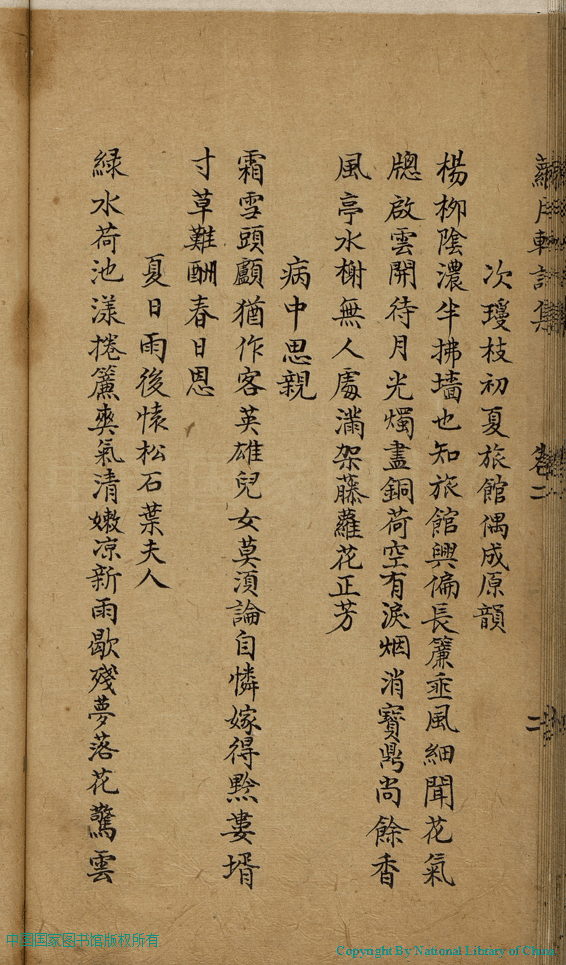 月軒詩集 卷二 二
次瓊枝初夏旅館偶成原韻
楊柳陰濃半拂墻也知旅館興偏長簾垂風細聞花氣
牕啟雲開待月光燭盡銅荷空有淚烟消寶鼎尚餘香
風亭水榭無人處滿架藤蘿花正芳
病中思親
霜雪頭顱猶作客英雄兒女莫須論自憐嫁得黔婁壻
寸草難酬春日恩
夏日雨後懷松石葉夫人
綠水荷池漾捲簾爽氣清嫩凉新雨歇殘夢落花驚雲
中国国家图书馆版权所有
Copyright By National Library of China